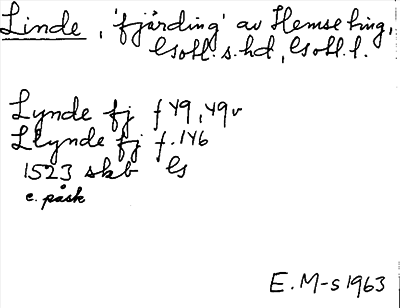 Linde, 'fjärding' av Hemse ting,
Gotl. s. hd, Gotl. l.
Lynde fj f 49, 49v
Llynde fj f. 146
1523 skb G
e. påsk
E. M-s 1963